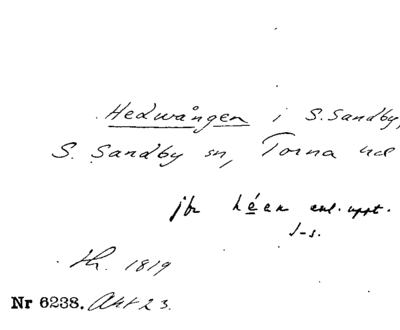 Hedwången i S. Sandby,
S. Sandby sn, Torna hd
jfr héen enl. uppt.
J-s.
1819
Nr 6238. Akt 23.